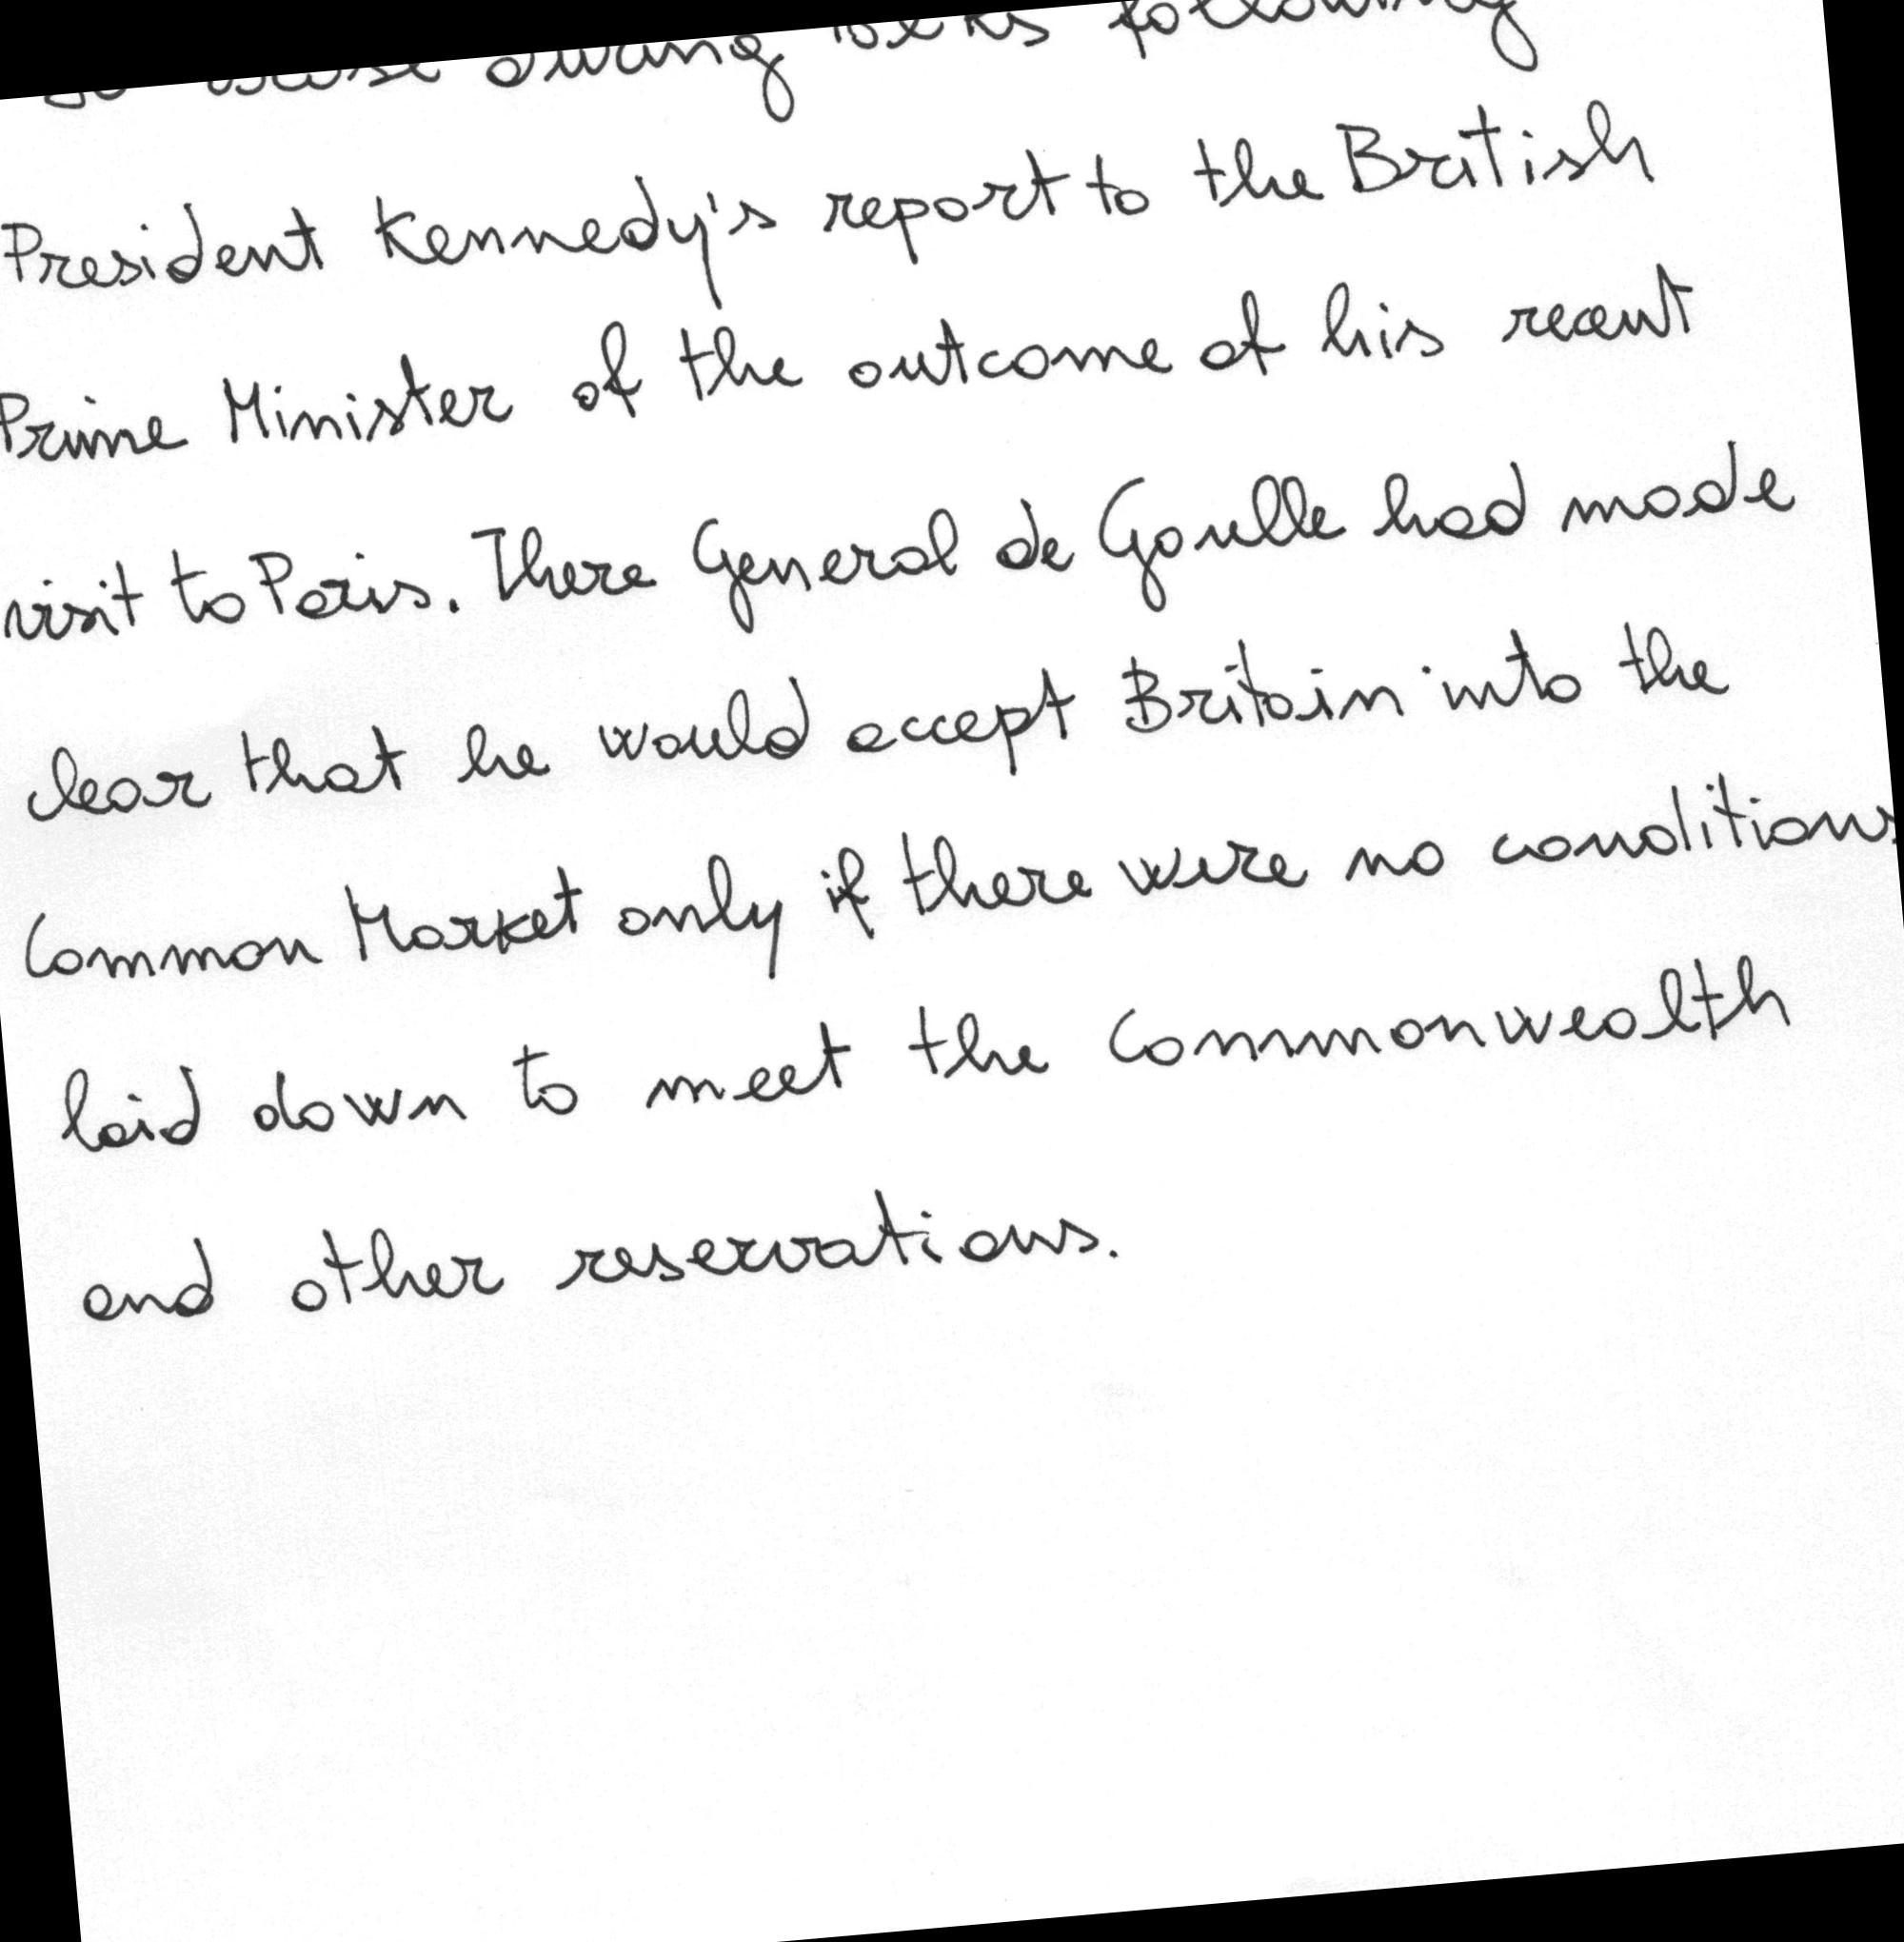 during talks following
President Kennedy's report to the British
Prime Minister of the outcome of his recent
visit to Paris. There General de Gaulle had made
clear that he would accept Britain into the
Common Market only if there were no conditions
laid down to meet the Commonwealth
and other reservations.